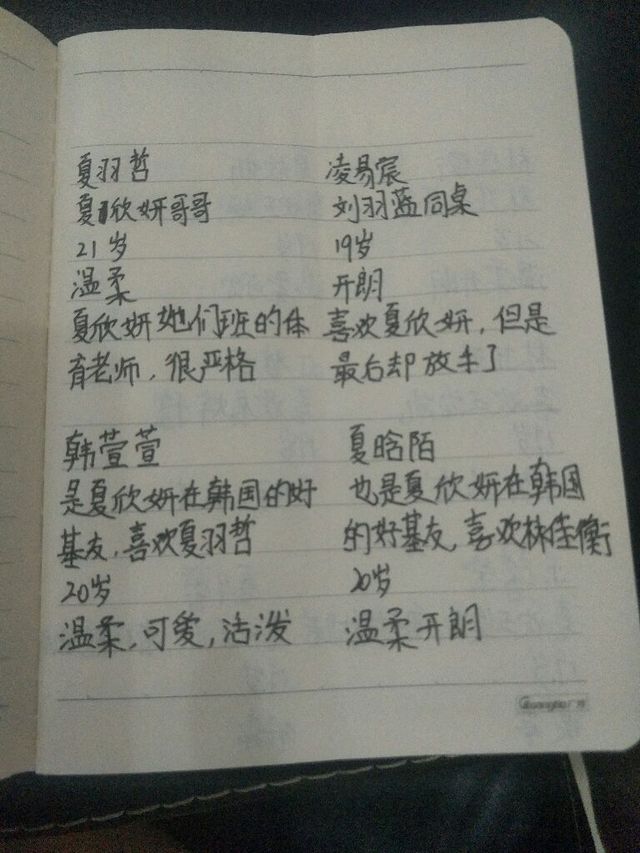 夏羽哲
夏欣妍哥哥
21岁
温柔
夏欣妍她们班的体
育老师，很严格
凌易宸
刘羽蓝同桌
19岁
开朗
喜欢夏欣妍，但是
最后却放手了
韩萱萱
是夏欣妍在韩国的好
基友，喜欢夏羽哲
20岁
温柔，可爱，活泼
夏晗陌
也是夏欣妍在韩国
的好基友，喜欢林佳衡
20岁
温柔开朗